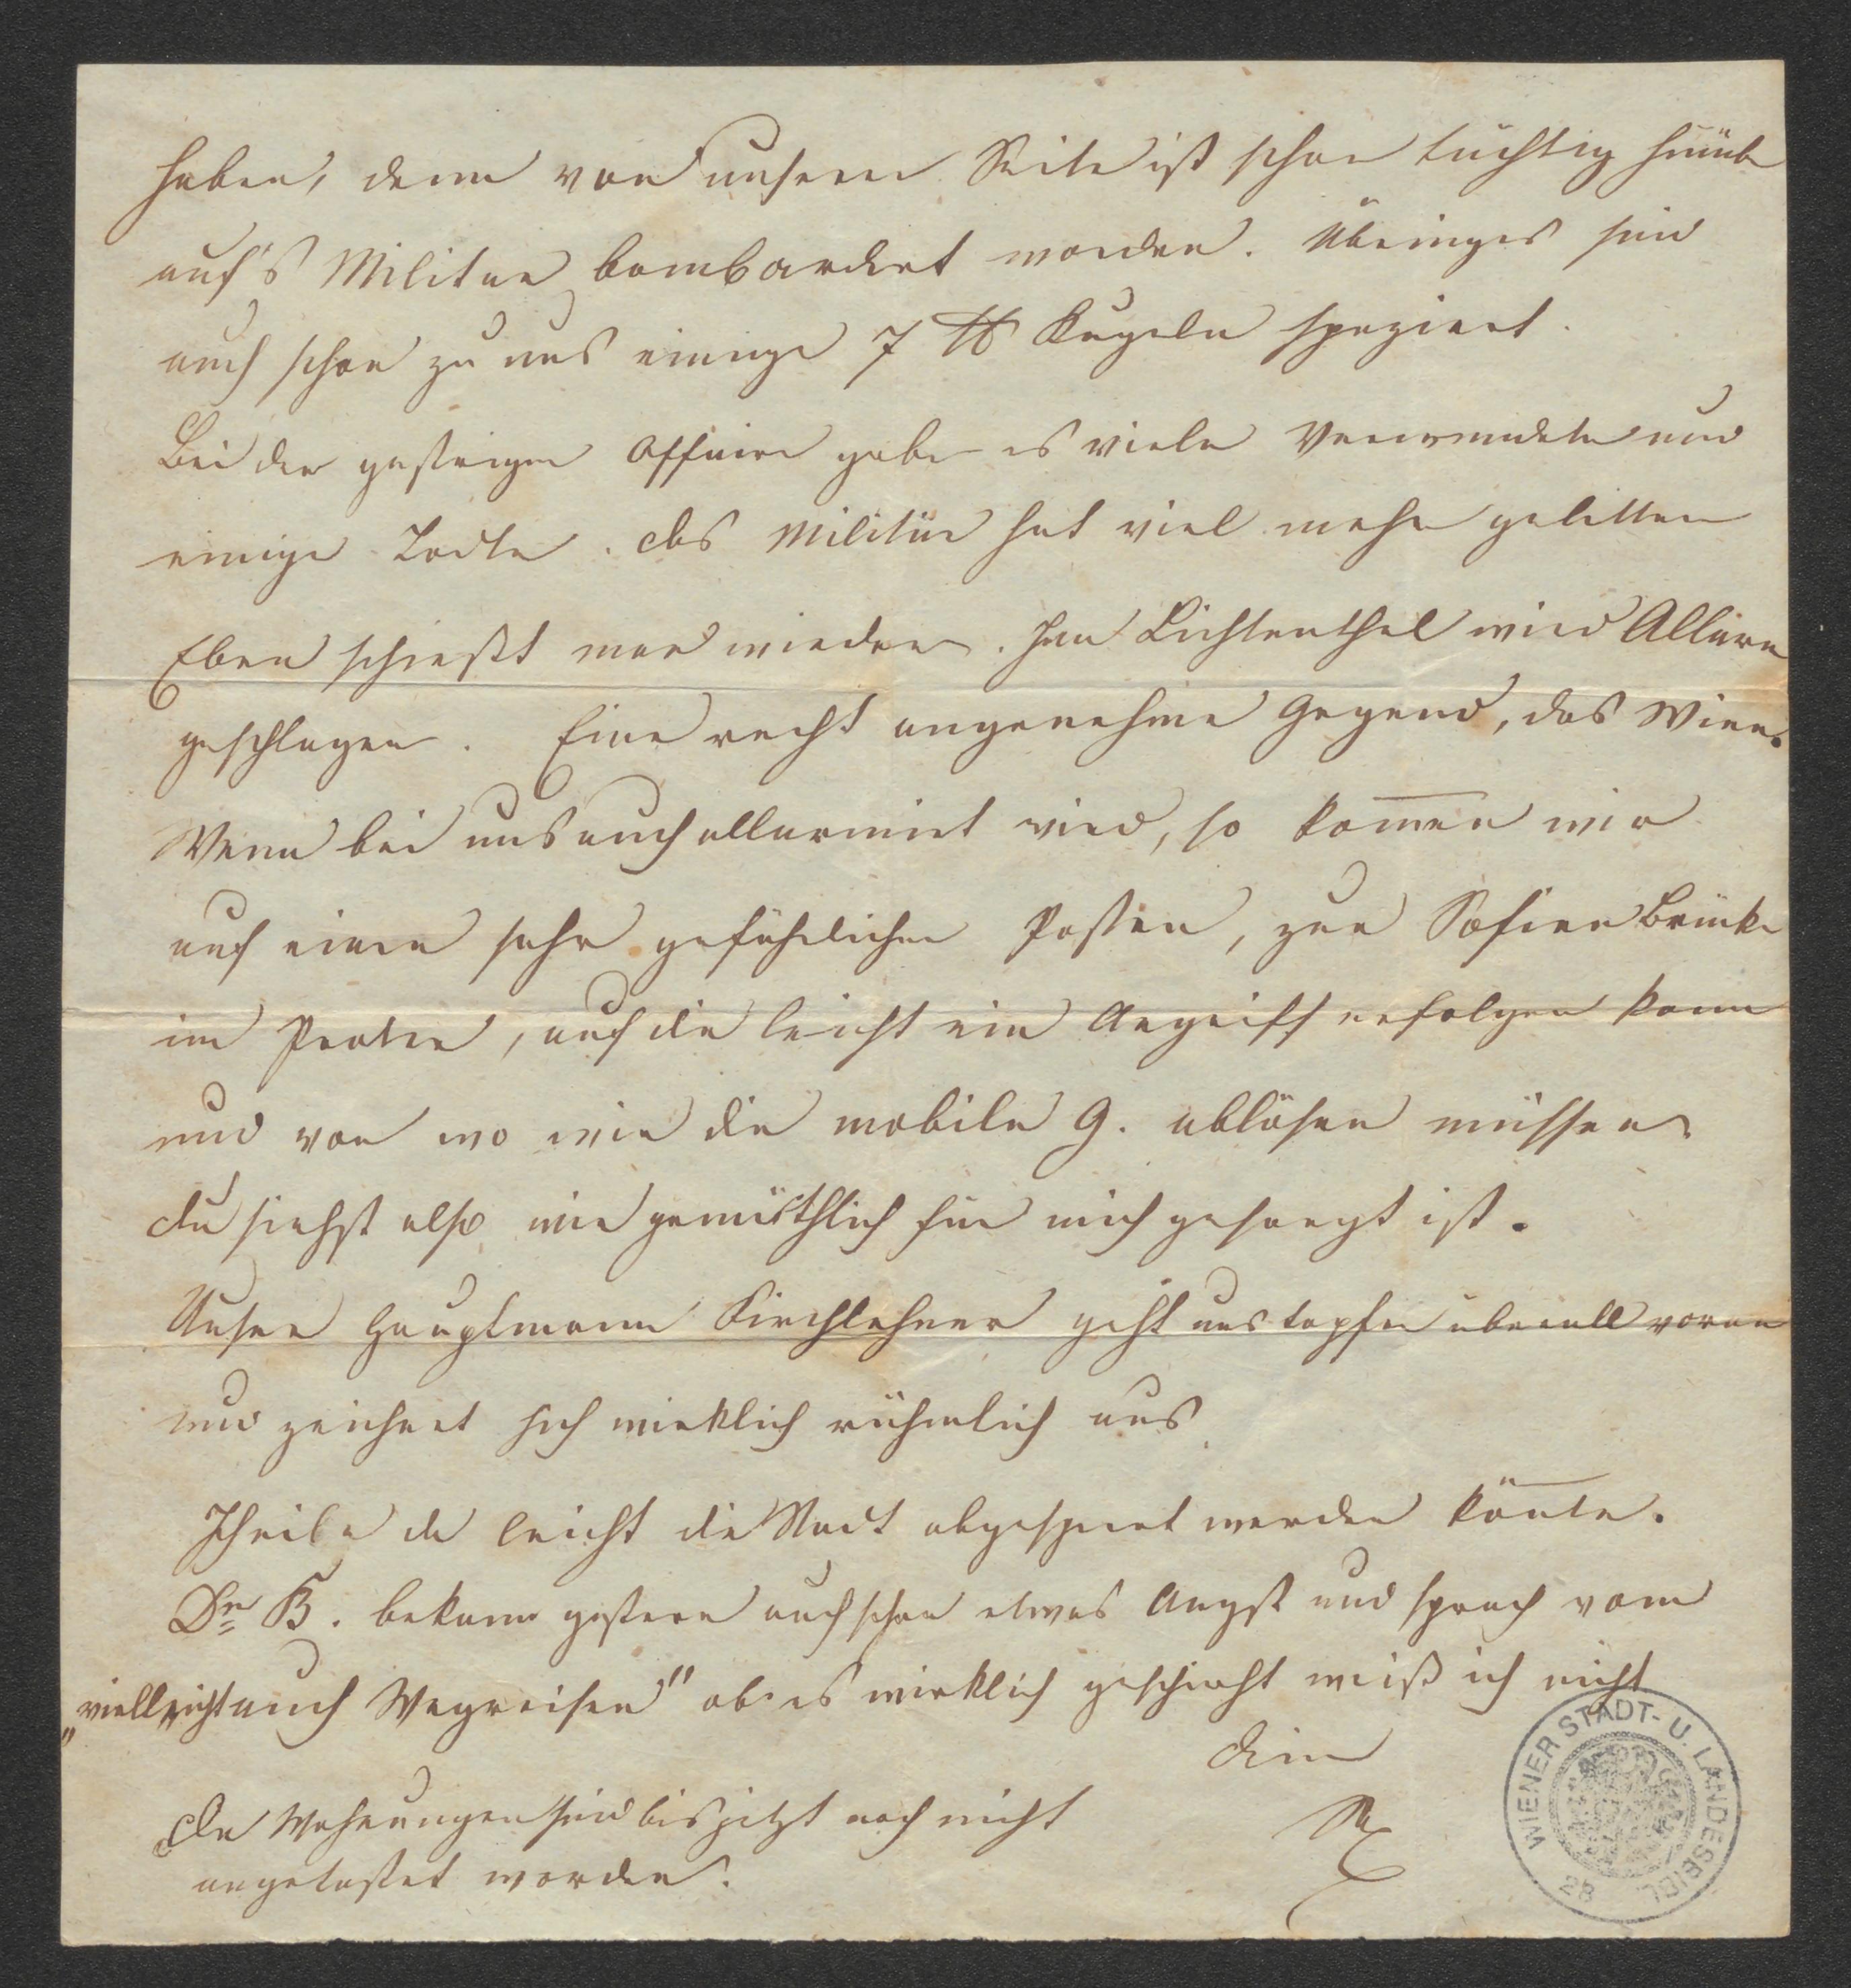 haben, denn von unserer Seite ist schon tüchtig hinüber
auf's Militär bombardirt worden. Übrigens sind
auch schon zu uns einige 7 ℔ Kugeln spaziert.
Bei der gestrigen Affaire gab es viele Verwundete und
einige Todte. Das Militär hat viel mehr gelitten
Eben schießt man wieder. Im Lichtenthal wird Allarm
geschlagen. Eine recht angenehme Gegend, das Wien.
Wenn bei uns auch allarmirt wird, so kom̄en wir
auf einen sehr gefährlichen Posten, zur Sofienbrücke
im Prater, auf die leicht ein Angriff erfolgen kann
und von wo wir die mobile G. ablösen müssen
Du siehst also wie gemüthlich für mich gesorgt ist.
Unser Hauptmann Kirchlehner geht uns tapfer überall voran
und zeichnet sich wirklich rühmlich aus
Schreibe da leicht die Stadt abgesperrt werden kön̄te.
Dr B. bekam gestern auch schon etwas Angst und sprach vom
„vielleicht auch Wegreisen" ob es wirklich geschieht weiß ich nicht
Dein
Die Wohnungen sind bis jetzt noch nicht
angetastet worden.
WIENER STADT- U. LANDESBIBL.
28